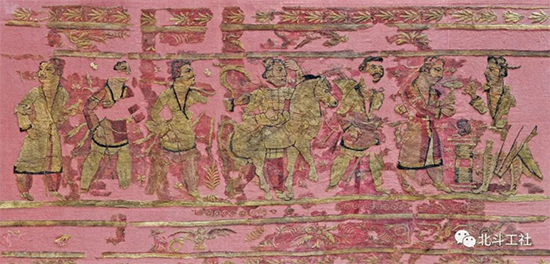 北斗工社